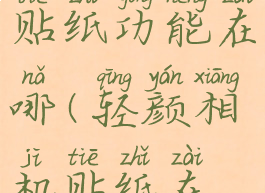 tiē zhǐ gōng néng zài
贴纸功能在
nǎ qīng yán xiāng
哪(轻颜相
jī tiē zhǐ zài
机贴纸在